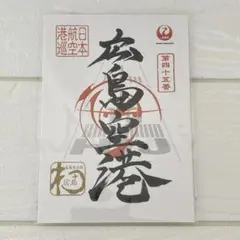 日本
航空
港巡
第四十五番
広島空港
広島